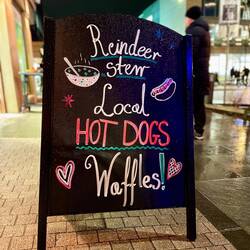 Reindeer
stew
Local
HOT DOGS
Waffles!